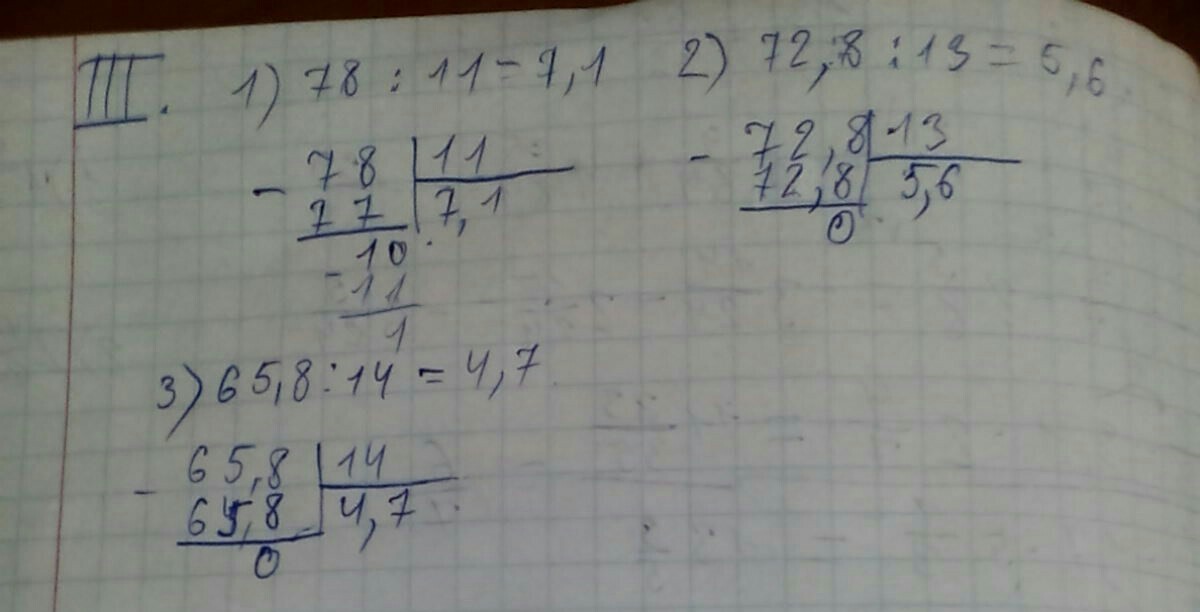 III. 1) 78 : 11 = 7,1 2) 72,8 : 13 = 5,6
- 78 | 11
77 | 7,1
- 10
11
1
- 72,8 | 13
72,8 | 5,6
0
3) 65,8 : 14 = 4,7
- 65,8 | 14
65,8 | 4,7
0